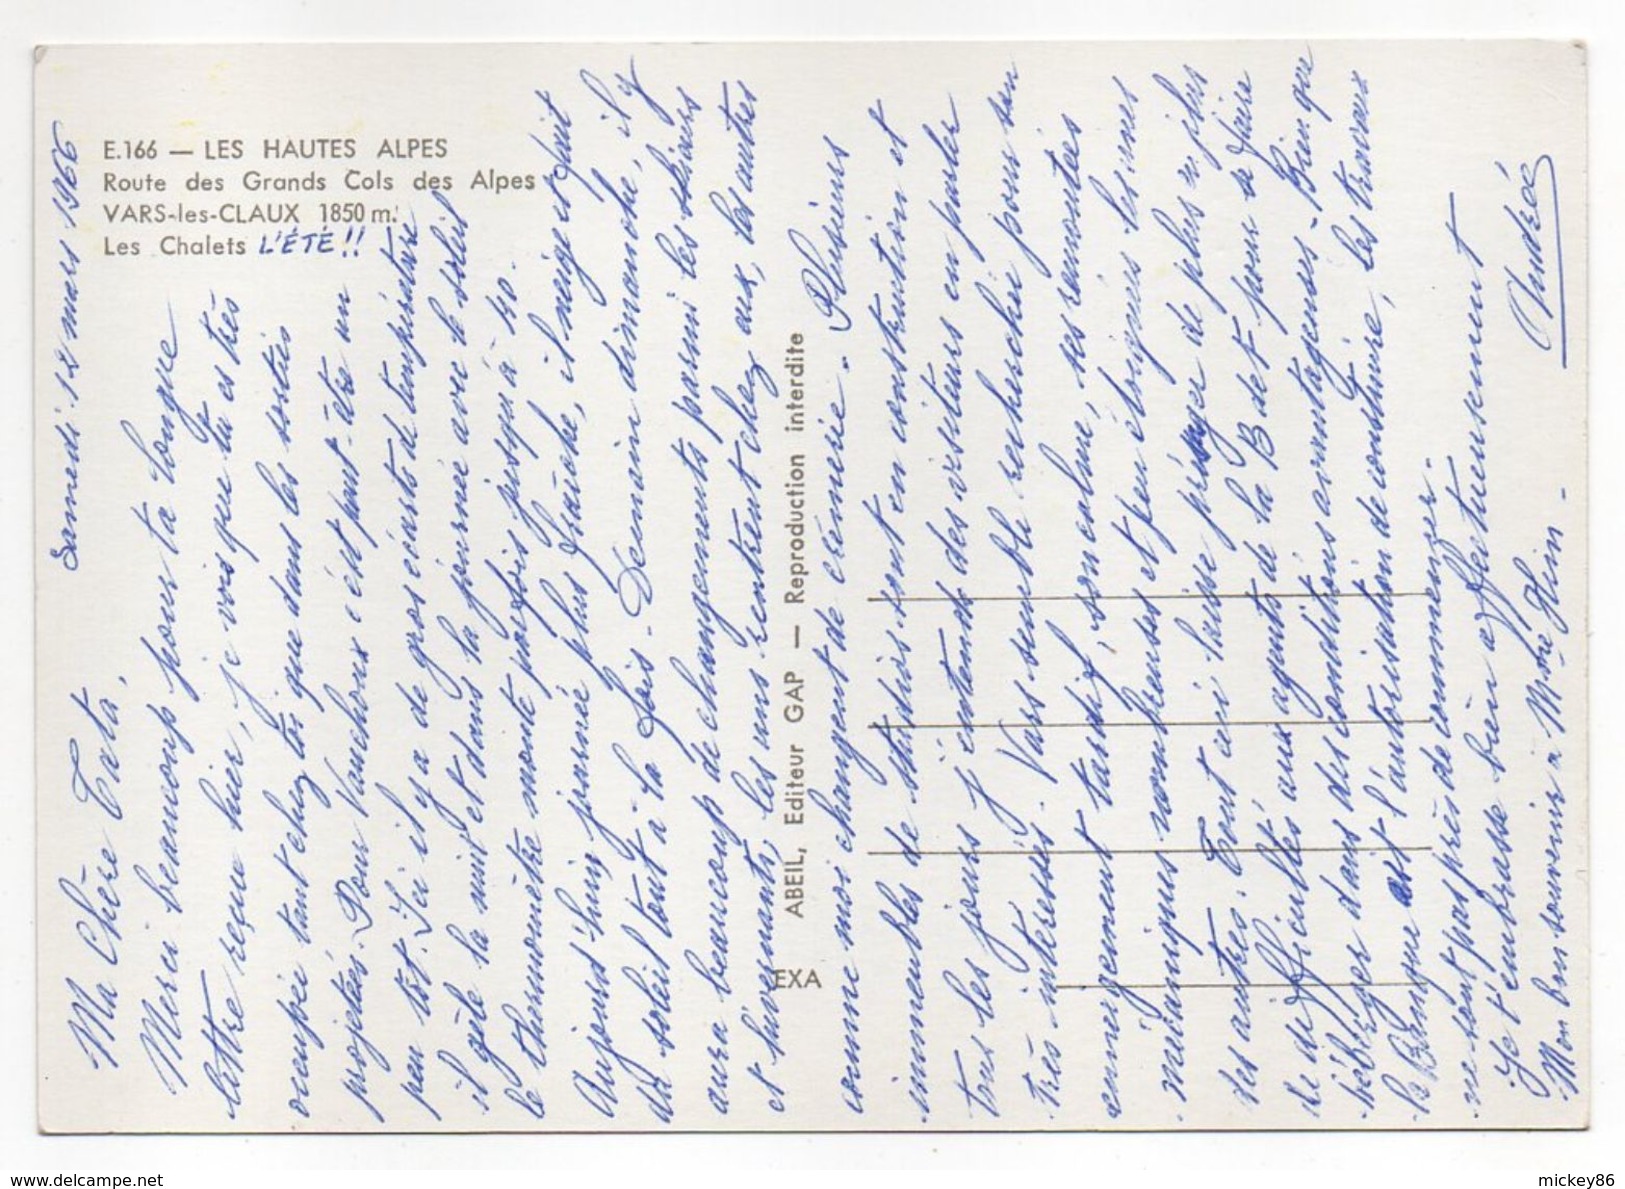 E.166 — LES HAUTES ALPES
Route des Grands Cols des Alpes
VARS-les-CLAUX 1850 m.
Les Chalets L'ÉTÉ !!
Samedi 12 mars 1966
Ma Chère Tata,
Merci beaucoup pour ta longue
lettre reçue hier, je vois que tu es très
occupée tant chez toi que dans les sorties
projetées. Pour Vauchoux c'est peut-être un
peu tôt. Ici il y a de gros écarts de température
il gèle la nuit et dans la journée avec le soleil
le thermomètre monte parfois jusqu'à 40.
Aujourd'hui, journée plus fraîche, il neige et fait
du soleil tout à la fois - Demain dimanche, il y
aura beaucoup de changements parmi les skieurs
et hivernants, les uns rentrent chez eux, les autres
comme moi changent de crémerie - Plusieurs
immeubles de studios sont en construction et
tous les jours j'entends des visiteurs en parler
très intéressés. Vars semble rechercher pour son
enneigement tardif, son calme, ses remontées
mécaniques nombreuses et peu éloignées les unes
des autres. Tout ceci laisse présager de plus en plus
de difficultés aux agents de la B de F pour se faire
héberger dans des conditions avantageuses - Bien que
la Banque ait l'autorisation de construire, les travaux
ne sont pas près de commencer -
Je t'embrasse bien affectueusement
Mon bon souvenir à Mme
Andrée
ABEIL, Editeur GAP — Reproduction interdite
EXA
www.delcampe.net
mickey86